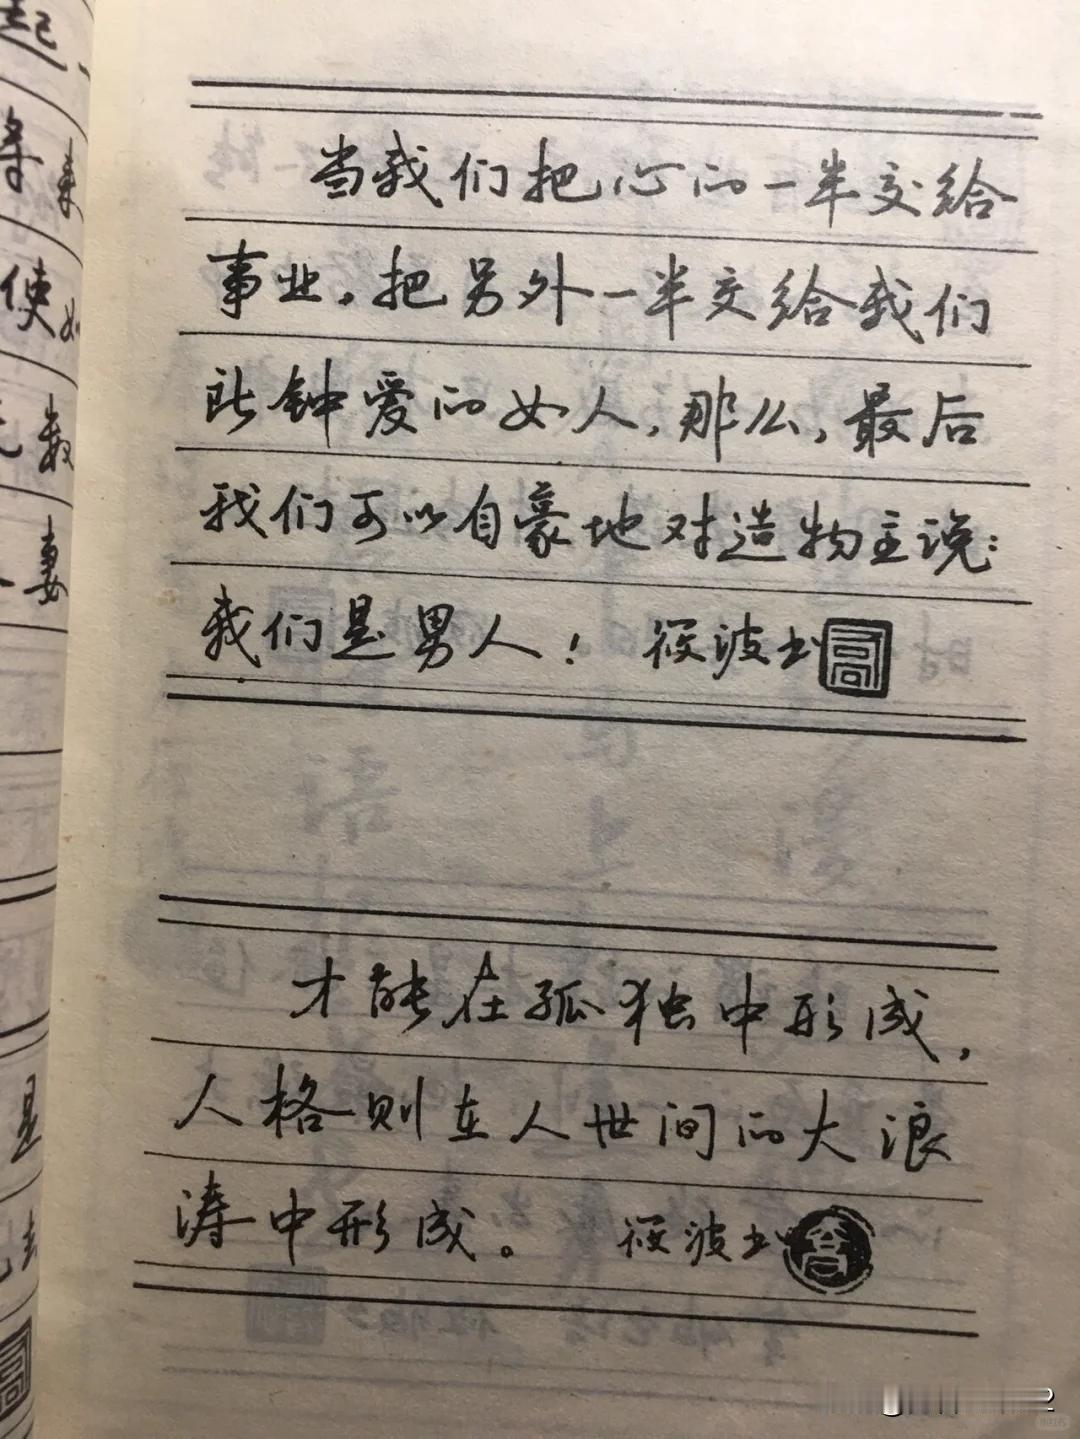 当我们把心的一半交给
事业，把另外一半交给我们
所钟爱的女人，那么，最后
我们可以自豪地对造物主说：
我们是男人！ 筱波书
才能在孤独中形成，
人格则在人世间的大浪
涛中形成。 筱波书
起
使
数
妻
是